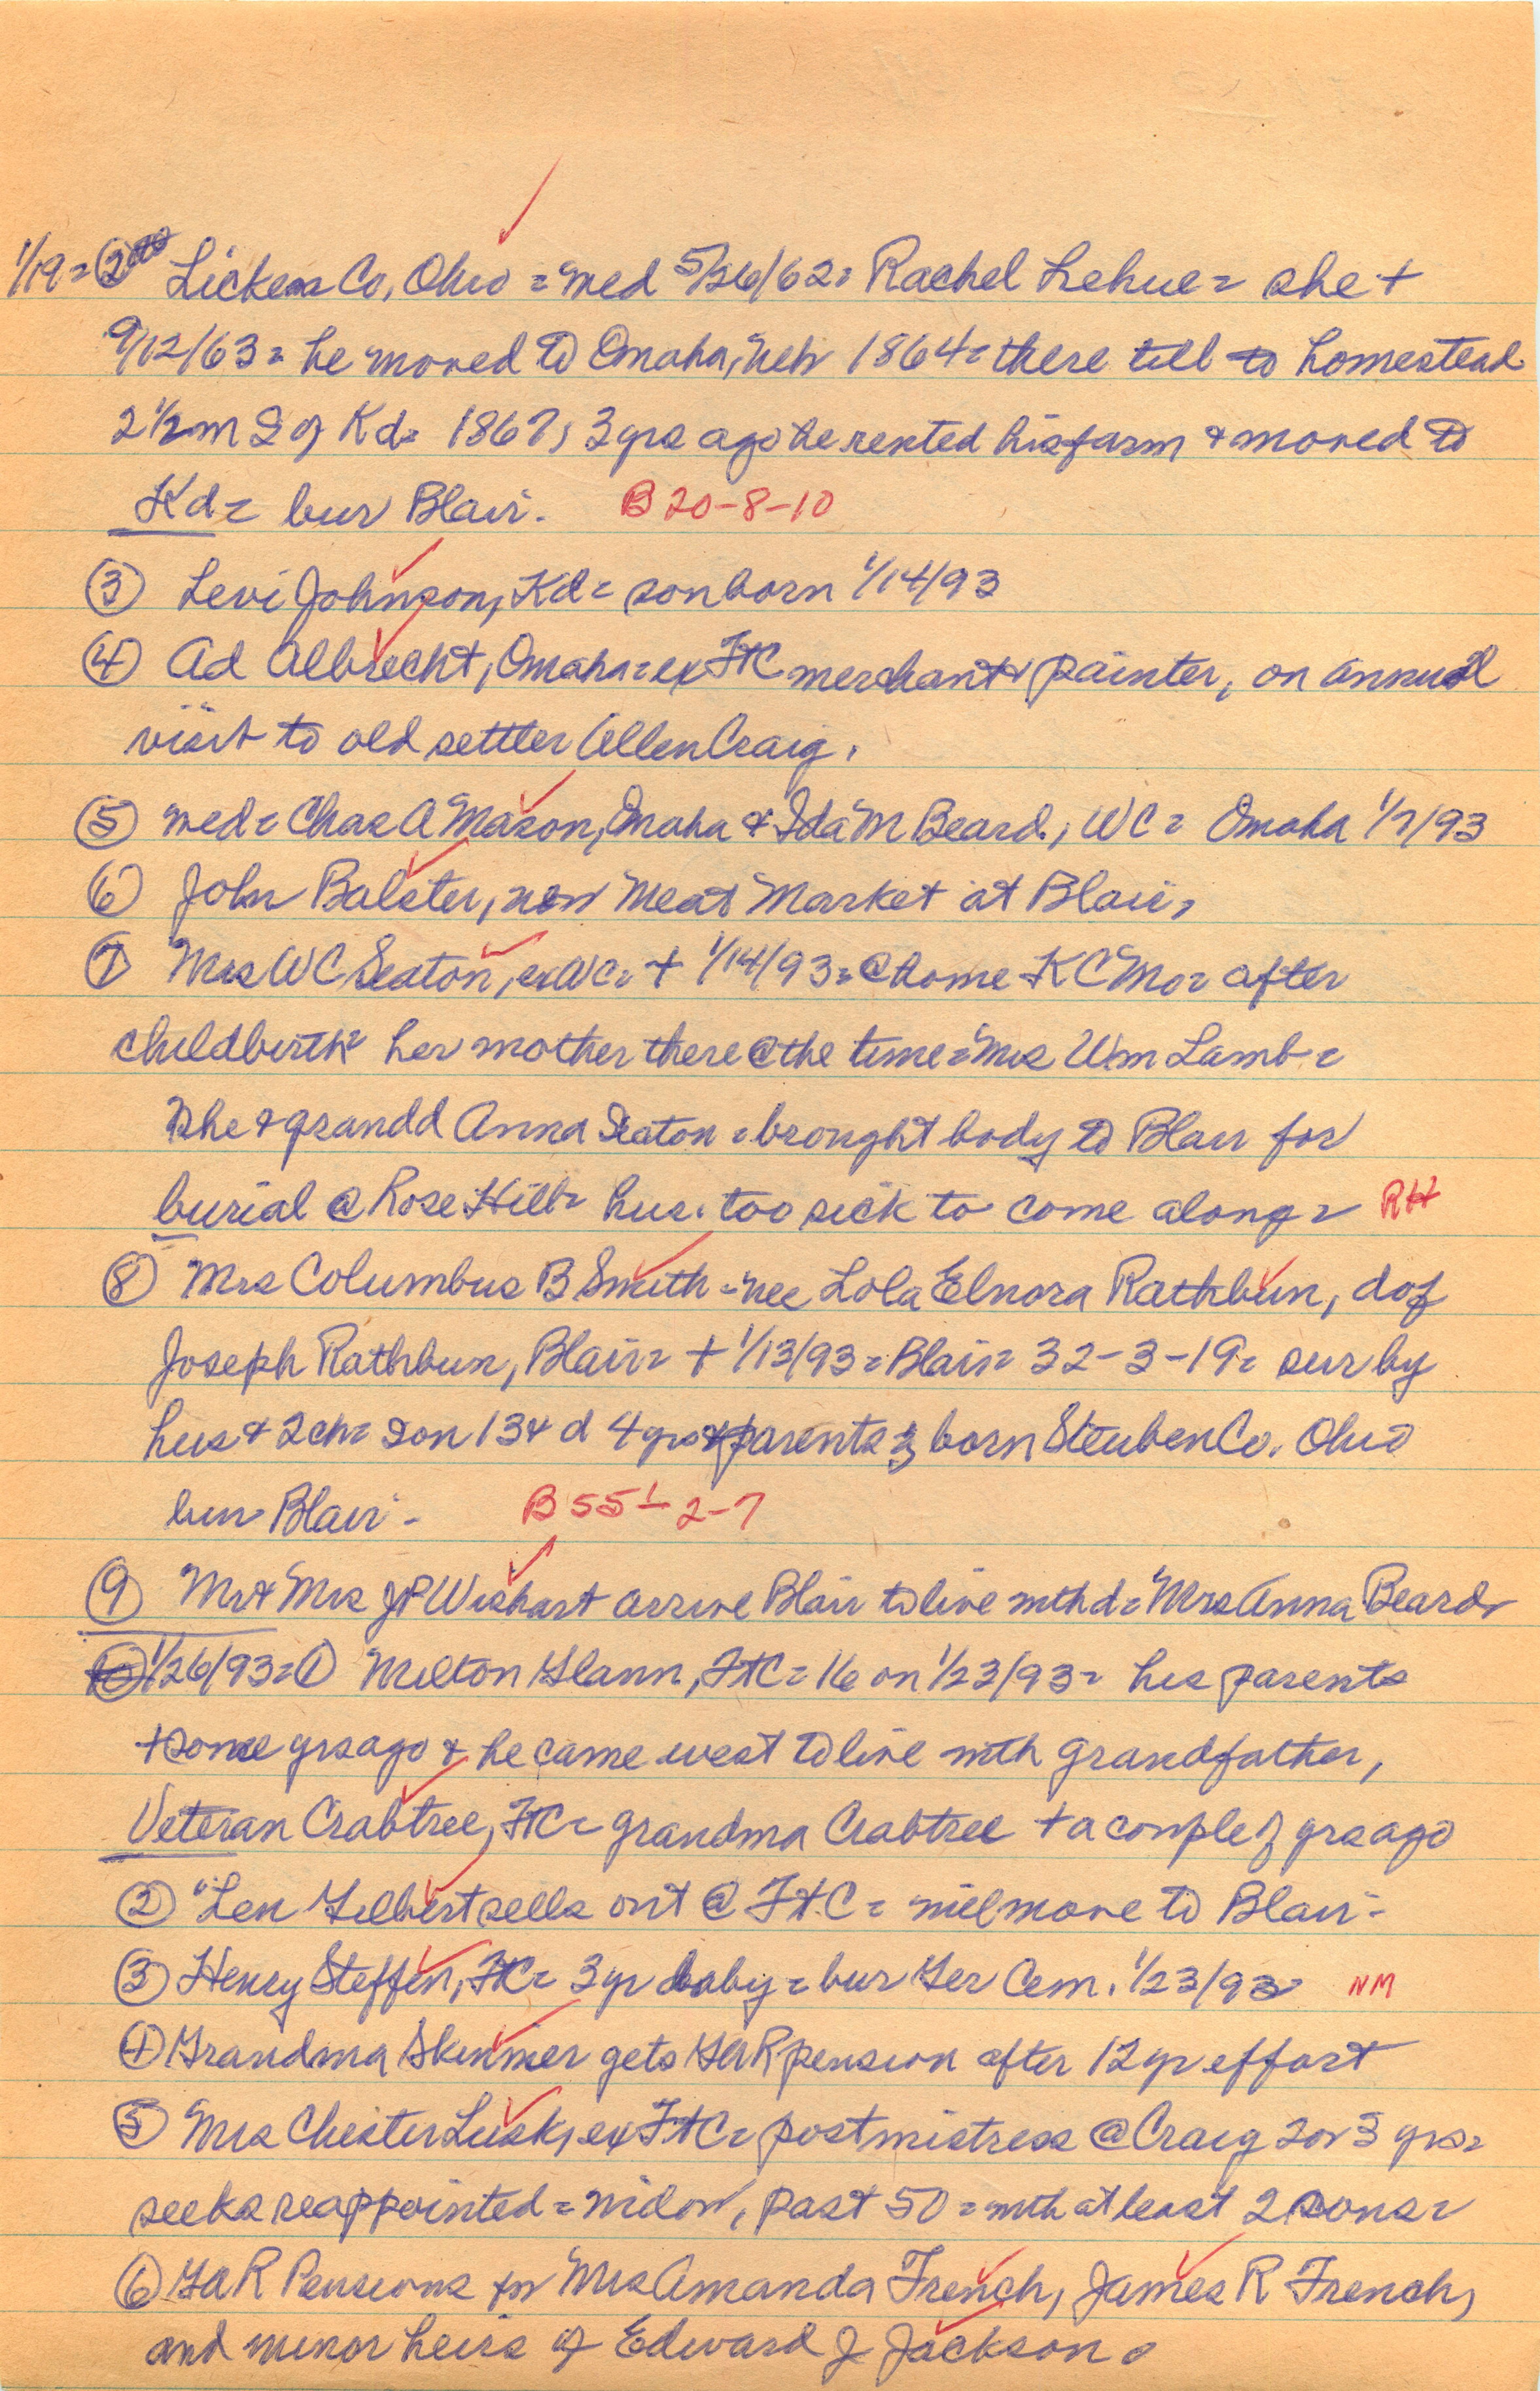 1/19 = ② Licken Co, Ohio = med 5/26/62 = Rachel Lehue = she +
9/12/63 = he moved to Omaha, Neb 1864 = there till to homestead
2 1/2 m S of Kd = 1867; 3 yrs ago he rented his farm & moved to
Kd = bur Blair. B 20-8-10
③ Levi Johnson, Kd = son born 1/14/93
④ Ad Albrecht, Omaha = ex FtC merchant & painter, on annual
visit to old settler Allen Craig.
⑤ med = Chas A Mason, Omaha & Ida M Beard, WC = Omaha 1/7/93
⑥ John Balster, new Meat Market at Blair,
⑦ Mrs WC Seaton, ex WC = + 1/14/93 = @ home KC Mo = after
childbirth = her mother there @ the time = Mrs Wm Lamb =
she & grandd Anna Seaton = brought body to Blair for
burial @ Rose Hill = hus. too sick to come along = RH
⑧ Mrs Columbus B Smith = nee Lola Elnora Rathbun, d of
Joseph Rathbun, Blair = + 1/13/93 = Blair = 32-3-19 = sur by
hus & 2 ch = son 13 & d 4 yrs & parents; born Steuben Co. Ohio
bur Blair - B 55-2-7
⑨ Mr & Mrs JP Wishart arrive Blair to live with d = Mrs Anna Beard
1/26/93 = ① Milton Glann, FtC = 16 on 1/23/93 = his parents
+ some yrs ago & he came west to live with grandfather,
Veteran Crabtree, FtC = grandma Crabtree + a couple of yrs ago
② "Len Gilbert sells out @ FtC = will move to Blair -
③ Henry Steffen, FtC = 3 yr baby = bur Ger Cem. 1/23/93 = NM
④ Grandma Skinner gets GAR pension after 12 yr effort
⑤ Mrs Chester Lusk, ex FtC = postmistress @ Craig 2 or 3 yrs =
seeks reappointed = widow, past 50 = with at least 2 sons =
⑥ GAR Pensions for Mrs Amanda French, James R French,
and minor heirs of Edward J Jackson.